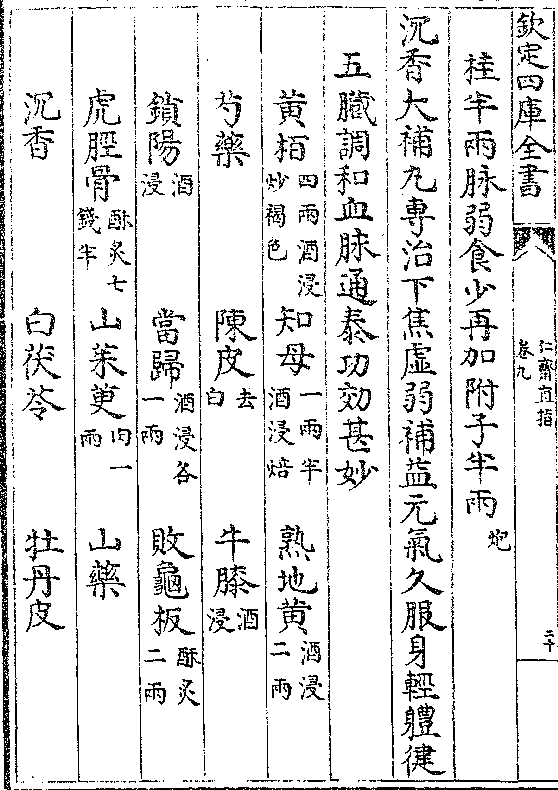 欽定四庫全書
仁齋直指
卷九
二十
桂半兩脉弱食少再加附子半兩炮
沉香大補丸専治下焦虚弱補益元氣久服身輕軆健
五臟調和血脉通泰功効甚妙
黄栢四兩酒浸炒褐色 知母一兩半酒浸焙 熟地黄酒浸二兩
芍藥 陳皮去白 牛膝酒浸
鎖陽酒浸 當歸酒浸各一兩 敗龜板酥炙二兩
虎脛骨酥炙七錢半 山茱萸肉一兩 山藥
沉香 白茯苓 牡丹皮